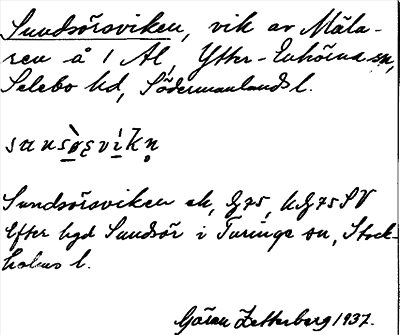 Sundsörsviken, vik av Mäla-
ren å 1 Al, Ytter-Enhörna sn,
Selebo hd, Södermanlands l.
Sundsörsviken ek, G75, hG75SV
Efter hgd Sundsör i Turinge sn, Stock-
holms l.
Göran Zetterberg 1937.